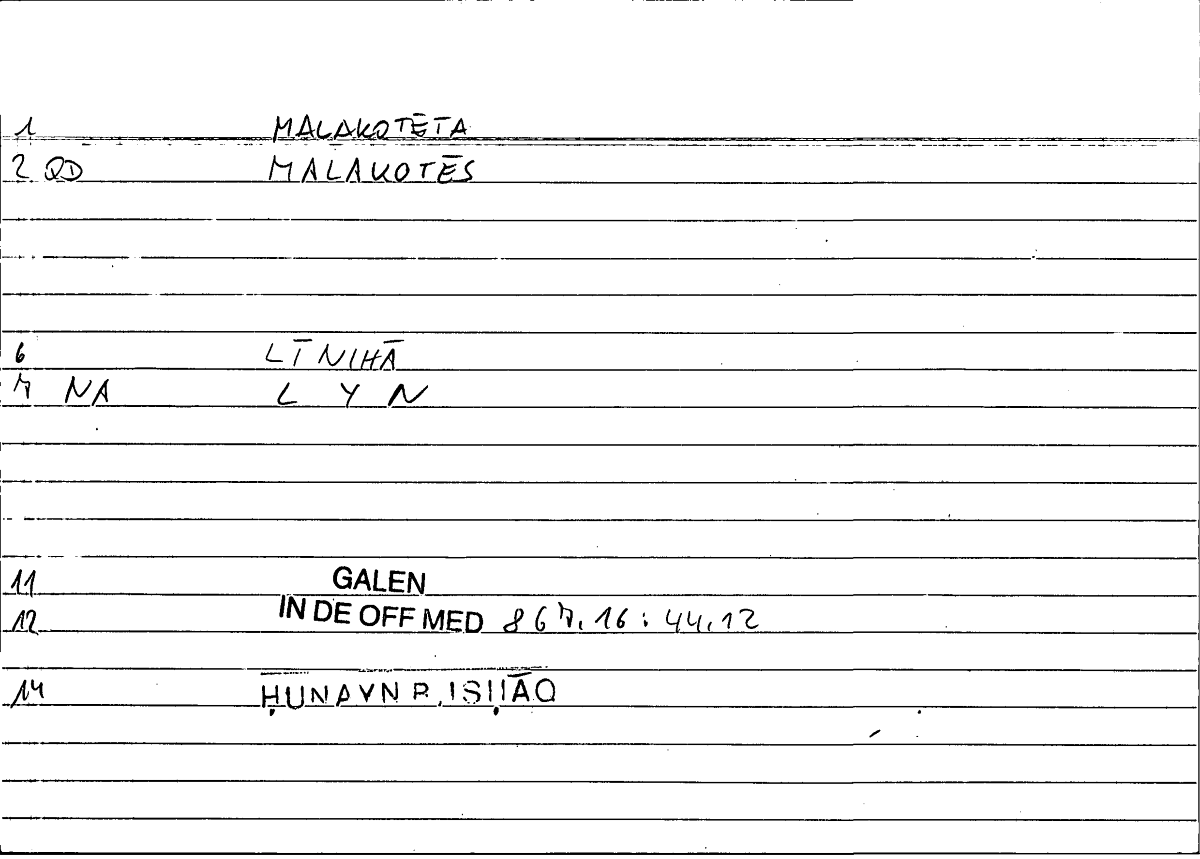 1 MALAKOTĒTA
2 QD MALAKOTĒS
6 LĪNIHĀ
7 NA L Y N
11 GALEN
12 IN DE OFF MED 867.16:44.12
14 ḤUNAYN B.ISḤĀQ